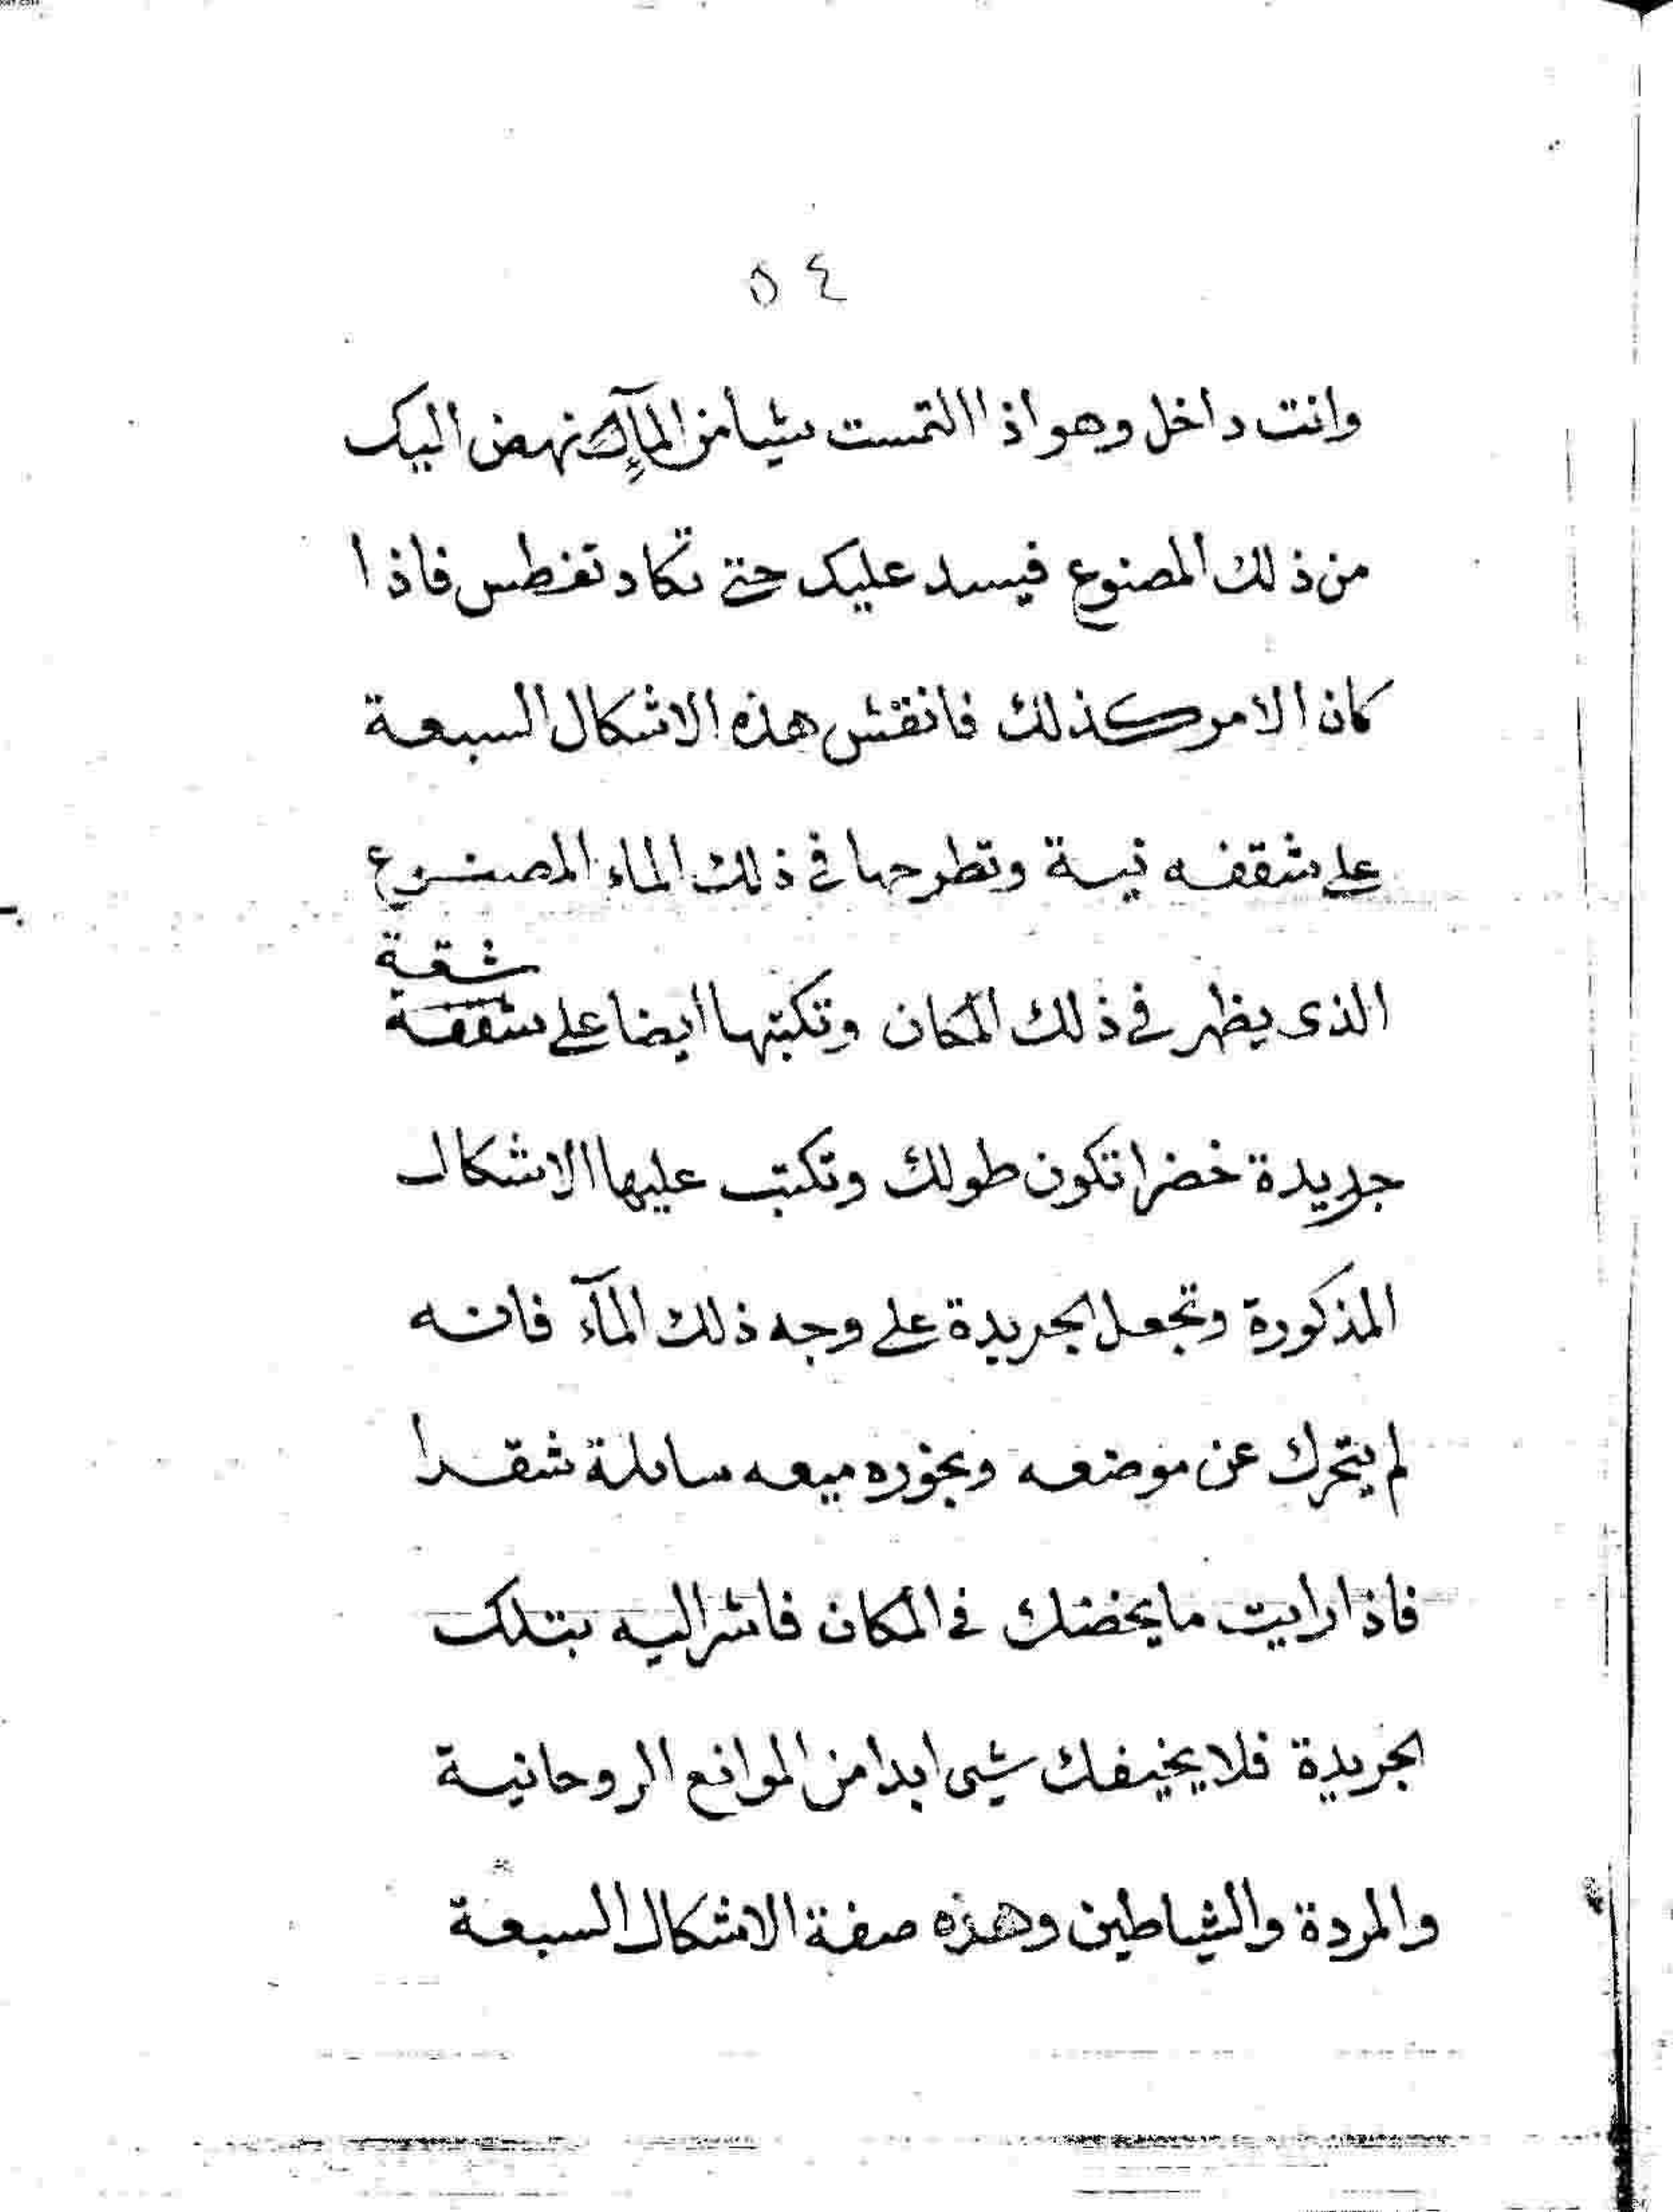 ٥٤
وانت داخل وهو اذا التمست شيا من نهض اليك
من ذلك المصنوع فيسد عليك حتى تكاد تغطس فاذا
كان الامر كذلك فانقش هذه الاشكال السبعة
على شقفه نية وتطرحها فى ذلك الماء المصنوع
شقة
الذى يظهر فى ذلك المكان وتكتبها ايضا على شقفة
جريدة خضرا تكون طولك وتكتب عليها الاشكال
المذكورة وتجعل الجريدة على وجه ذلك المآء فانه
لم يتحرك عن موضعه وبخوره ميعه سايلة شقرا
فاذا رايت ما يخضك فى المكان فاشر اليه بتلك
الجريدة فلا يخيفك شيى ابدا من الموانع الروحانية
والمردة والشياطين وهذه صفة الاشكال السبعة